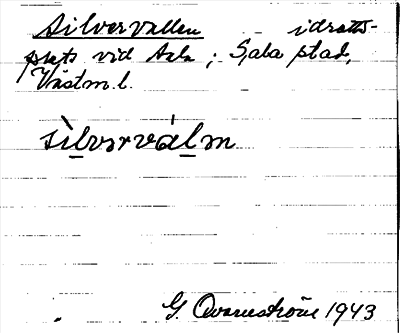 Silvervallen idrotts-
plats vid Sala; Sala stad,
Västm. l.
sìlvərválm
G. Qvarnström 1943